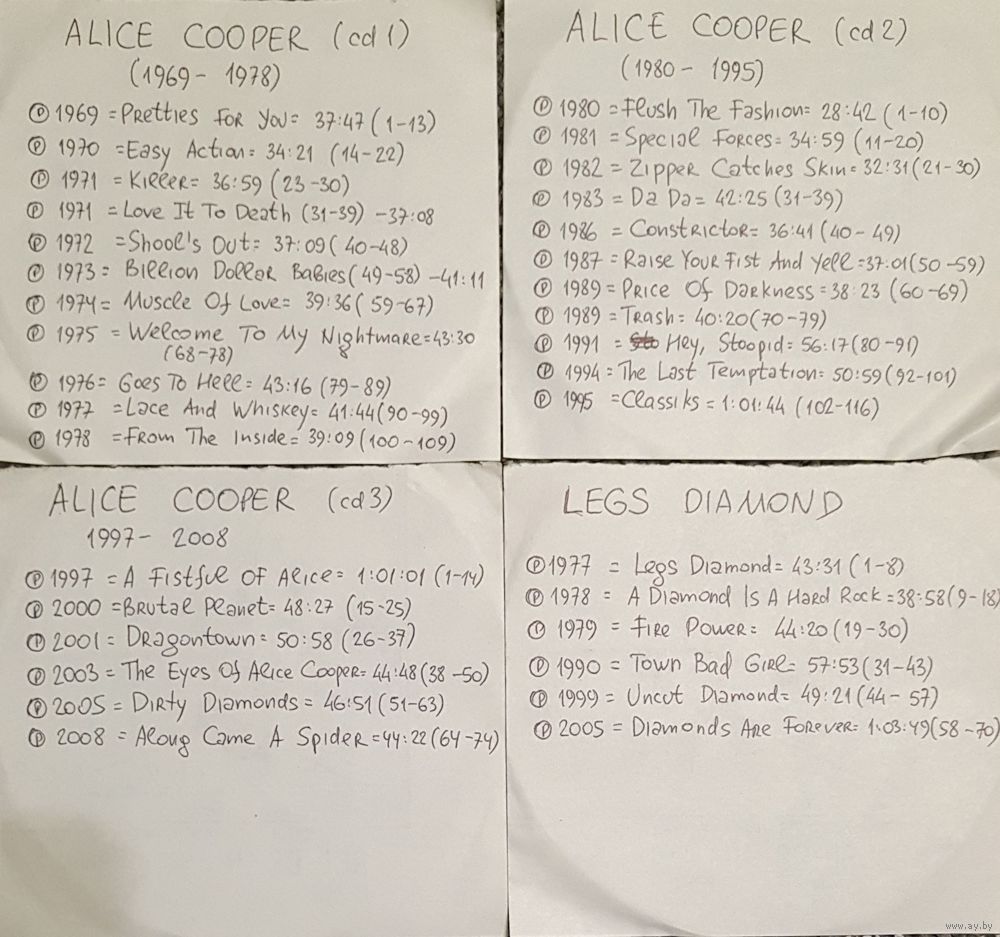 ALICE COOPER (cd 1)
(1969 - 1978)
Ⓟ 1969 = Pretties For You = 37:47 (1-13)
Ⓟ 1970 = Easy Action = 34:21 (14-22)
Ⓟ 1971 = Killer = 36:59 (23-30)
Ⓟ 1971 = Love It To Death (31-39) - 37:08
Ⓟ 1972 = Shool's Out = 37:09 (40-48)
Ⓟ 1973 = Billion Dollar Babies (49-58) - 41:11
Ⓟ 1974 = Muscle Of Love = 39:36 (59-67)
Ⓟ 1975 = Welcome To My Nightmare = 43:30
(68-78)
Ⓟ 1976 = Goes To Hell = 43:16 (79-89)
Ⓟ 1977 = Lace And Whiskey = 41:44 (90-99)
Ⓟ 1978 = From The Inside = 39:09 (100-109)
ALICE COOPER (cd 2)
(1980 - 1995)
Ⓟ 1980 = Flush The Fashion = 28:42 (1-10)
Ⓟ 1981 = Special Forces = 34:59 (11-20)
Ⓟ 1982 = Zipper Catches Skin = 32:31 (21-30)
Ⓟ 1983 = Da Da = 42:25 (31-39)
Ⓟ 1986 = Constrictor = 36:41 (40-49)
Ⓟ 1987 = Raise Your Fist And Yell = 37:01 (50-59)
Ⓟ 1989 = Price Of Darkness = 38:23 (60-69)
Ⓟ 1989 = Trash = 40:20 (70-79)
Ⓟ 1991 = Hey, Stoopid = 56:17 (80-91)
Ⓟ 1994 = The Last Temptation = 50:59 (92-101)
Ⓟ 1995 = Classiks = 1:01:44 (102-116)
ALICE COOPER (cd 3)
1997 - 2008
Ⓟ 1997 = A Fistful Of Alice = 1:01:01 (1-14)
Ⓟ 2000 = Brutal Planet = 48:27 (15-25)
Ⓟ 2001 = Dragontown = 50:58 (26-37)
Ⓟ 2003 = The Eyes Of Alice Cooper = 44:48 (38-50)
Ⓟ 2005 = Dirty Diamonds = 46:51 (51-63)
Ⓟ 2008 = Along Came A Spider = 44:22 (64-74)
LEGS DIAMOND
Ⓟ 1977 = Legs Diamond = 43:31 (1-8)
Ⓟ 1978 = A Diamond Is A Hard Rock = 38:58 (9-18)
Ⓟ 1979 = Fire Power = 44:20 (19-30)
Ⓟ 1990 = Town Bad Girl = 57:53 (31-43)
Ⓟ 1999 = Uncut Diamond = 49:21 (44-57)
Ⓟ 2005 = Diamonds Are Forever = 1:03:49 (58-70)
www.ay.by